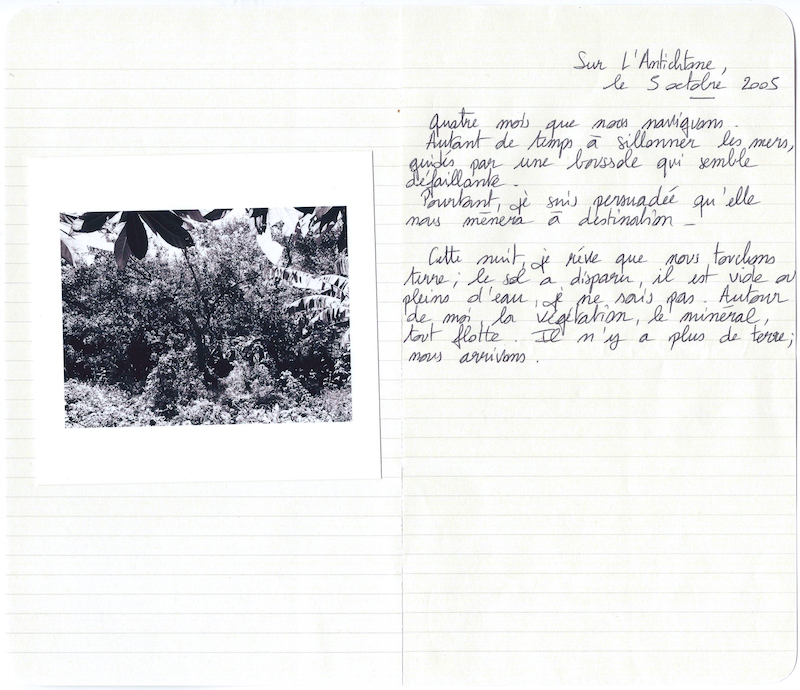 Sur L'Antichtone,
le 5 octobre 2005
Quatre mois que nous naviguons.
Autant de temps à sillonner les mers,
guidés par une boussole qui semble
défaillante.
Pourtant, je suis persuadée qu'elle
nous mènera à destination –
Cette nuit, je rêve que nous touchons
terre ; le sol a disparu, il est vide ou
pleins d'eau, je ne sais pas. Autour
de moi, la végétation, le minéral,
tout flotte. Il n'y a plus de terre ;
nous arrivons.